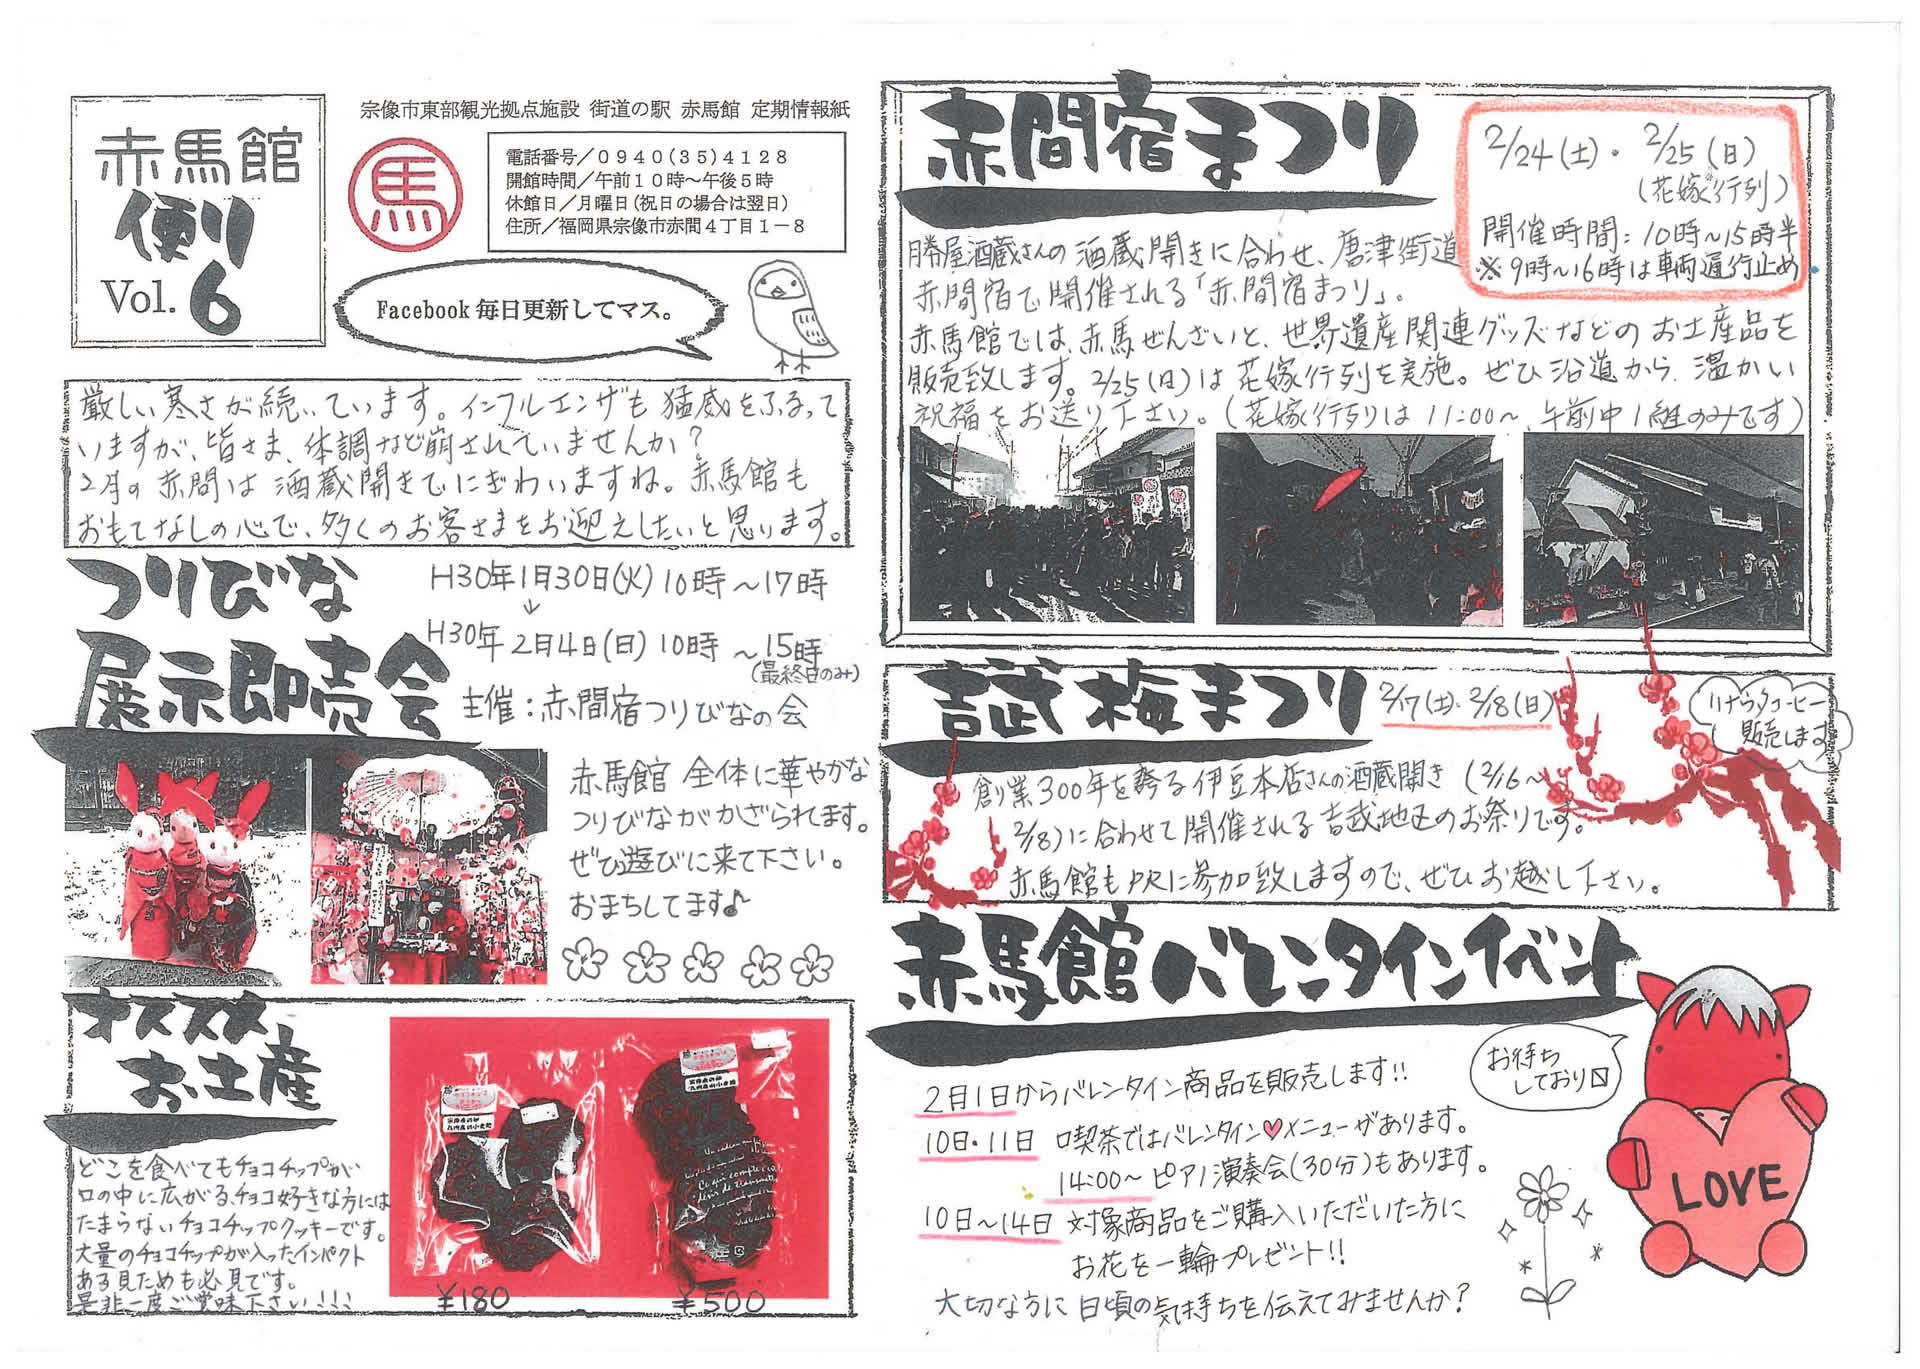 赤馬館
便り
Vol. 6
宗像市東部観光拠点施設 街道の駅 赤馬館 定期情報紙
馬
電話番号／０９４０(３５)４１２８
開館時間／午前１０時〜午後５時
休館日／月曜日(祝日の場合は翌日)
住所／福岡県宗像市赤間４丁目１－８
Facebook 毎日更新してマス。
厳しい寒さが続いています。インフルエンザも猛威をふるって
いますが、皆さま、体調など崩されていませんか？
2月の赤間は酒蔵開きでにぎわいますね。赤馬館も
おもてなしの心で、多くのお客さまをお迎えしたいと思います。
つりびな
展示即売会
H30年1月30日(火)10時〜17時
↓
H30年2月4日(日)10時〜15時
(最終日のみ)
主催：赤間宿つりびなの会
赤馬館 全体に華やかな
つりびながかざられてます。
ぜひ遊びに来て下さい。
おまちしてます♪
オススメ
お土産
どこを食べてもチョコチップが、
口の中に広がる、チョコ好きな方には
たまらないチョコチップクッキーです。
大量のチョコチップが入ったインパクト
ある見ためも必見です。
是非一度ご賞味下さい!!!
¥180
¥500
赤間宿まつり
2/24(土)・2/25(日)
(花嫁行列)
開催時間：10時〜15時半
※9時〜16時は車両通行止め
勝屋酒蔵さんの酒蔵開きに合わせ、唐津街道
赤間宿で開催される「赤間宿まつり」。
赤馬館では、赤馬ぜんざいと、世界遺産関連グッズなどのお土産品を
販売致します。2/25(日)は花嫁行列を実施。ぜひ沿道から、温かい
祝福をお送り下さい。(花嫁行列は11:00〜、午前中1組のみです)
吉武梅まつり
2/17(土)・2/18(日)
販売します
創業300年を誇る伊豆本店さんの酒蔵開き(2/16〜
2/18)に合わせて開催される吉武地区のお祭りです。
赤馬館もPRに参加致しますので、ぜひお越し下さい。
赤馬館バレンタインイベント
お待ち
しており〼
2月1日からバレンタイン商品を販売します!!
10日・11日 喫茶ではバレンタイン♡メニューがあります。
14:00〜ピアノ演奏会(30分)もあります。
10日〜14日 対象商品をご購入いただいた方に
お花を一輪プレゼント!!
大切な方に日頃の気持ちを伝えてみませんか？
LOVE